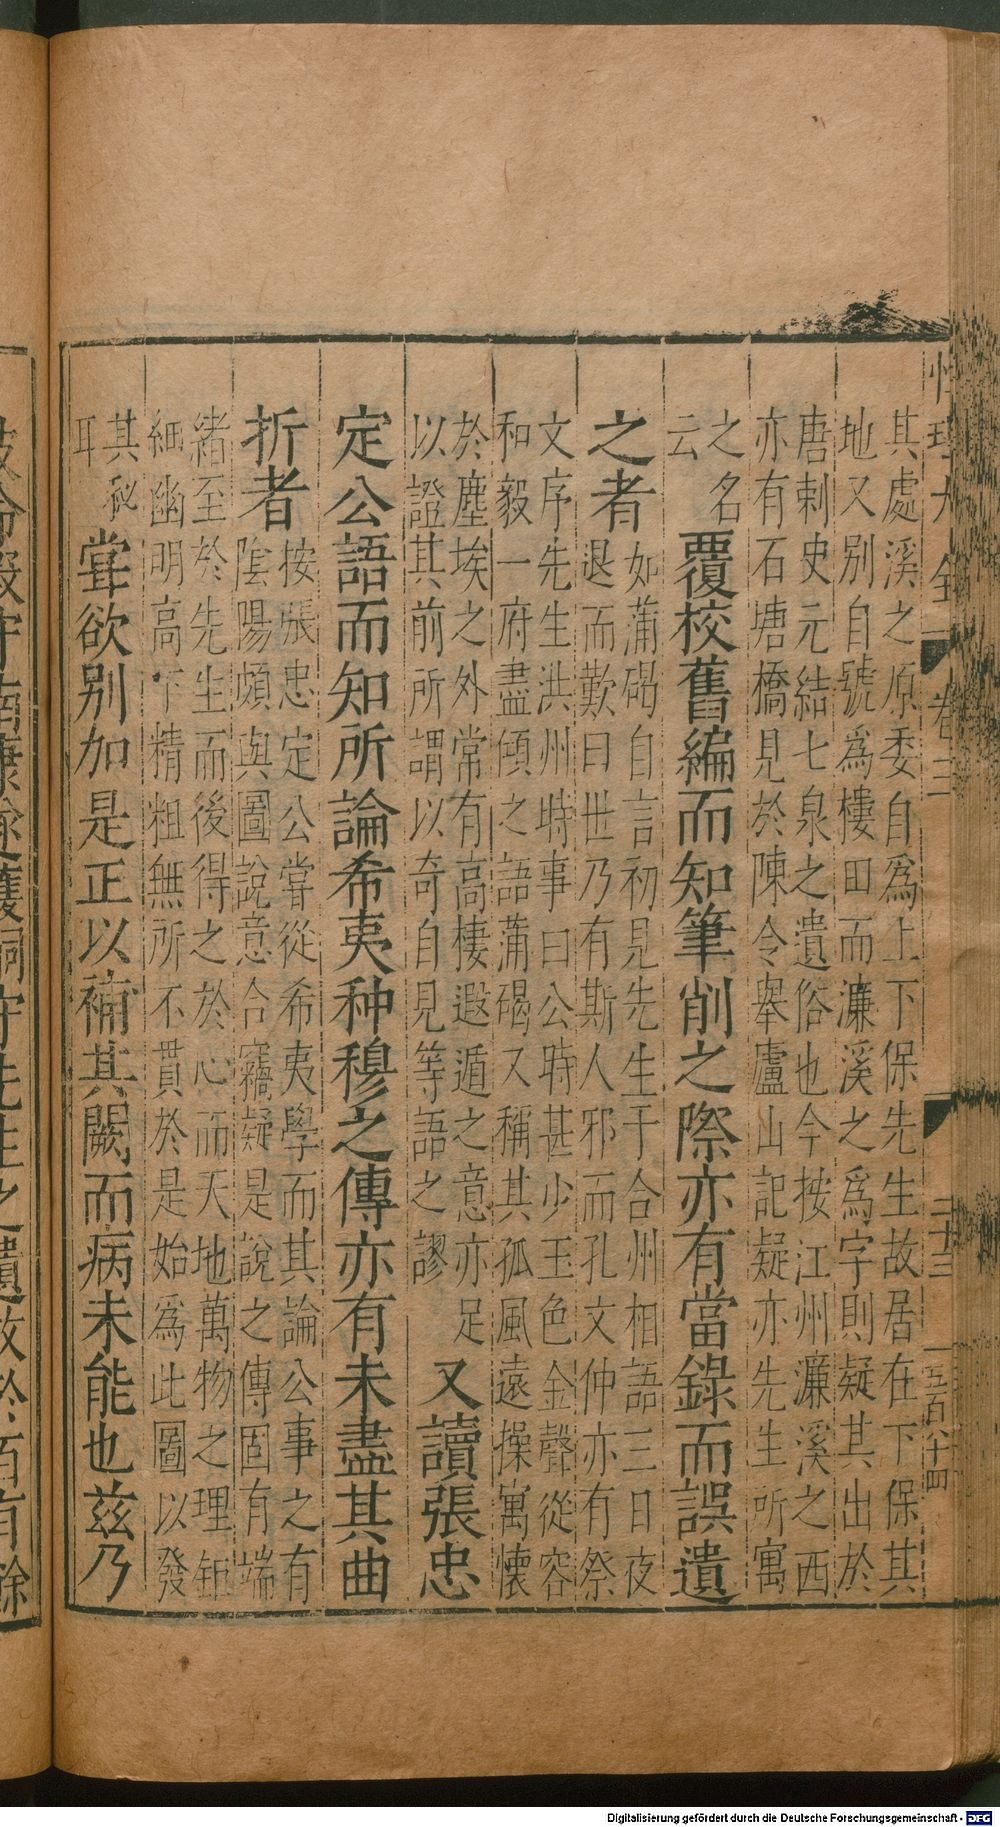 其處溪之原委自爲上下保先生故居在下保其
地又别自號爲樓田而濂溪之爲字則疑其出於
唐刺史元結七泉之遺俗也今按江州濂溪之西
亦有石塘橋見於陳令舉廬山記疑亦先生所寓
之名
云
覆校舊編而知筆削之際亦有當錄而誤遺
之者
如蒲碣自言初見先生于合州相語三日夜
退而歎曰世乃有斯人邪而孔文仲亦有祭
文序先生洪州時事曰公時甚少玉色金聲從容
和毅一府盡傾之語蒲碣又稱其孤風遠操寓懷
於塵埃之外常有高棲遐遁之意亦足
以證其前所謂以奇自見等語之謬
又讀張忠
定公語而知所論希夷种穆之傳亦有未盡其曲
折者
按張忠定公嘗從希夷學而其論公事之有
陰陽頗與圖說意合竊疑是說之傳固有端
緒至於先生而後得之於心而天地萬物之理鉅
細幽明高下精粗無所不貫於是始爲此圖以發
其秘
耳
嘗欲别加是正以補其闕而病未能也茲乃
卷三
二十三
一五百六十四
Digitalisierung gefördert durch die Deutsche Forschungsgemeinschaft - DFG